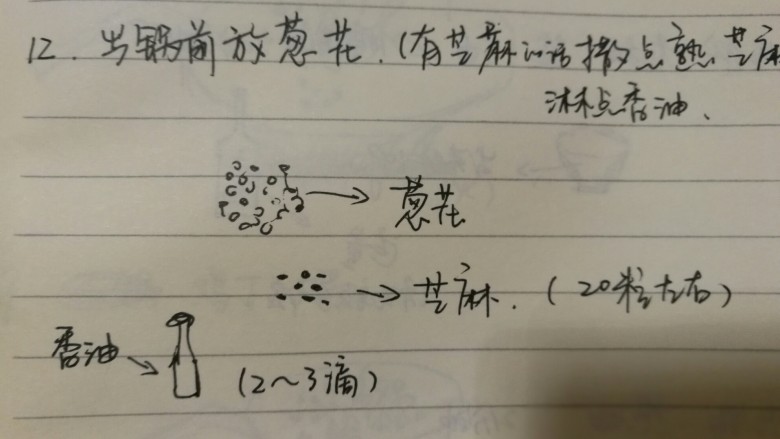 12. 出锅前放葱花.(有芝麻的话撒点熟芝麻
淋点香油、
葱花
芝麻.(20粒左右)
香油
(2~3滴)